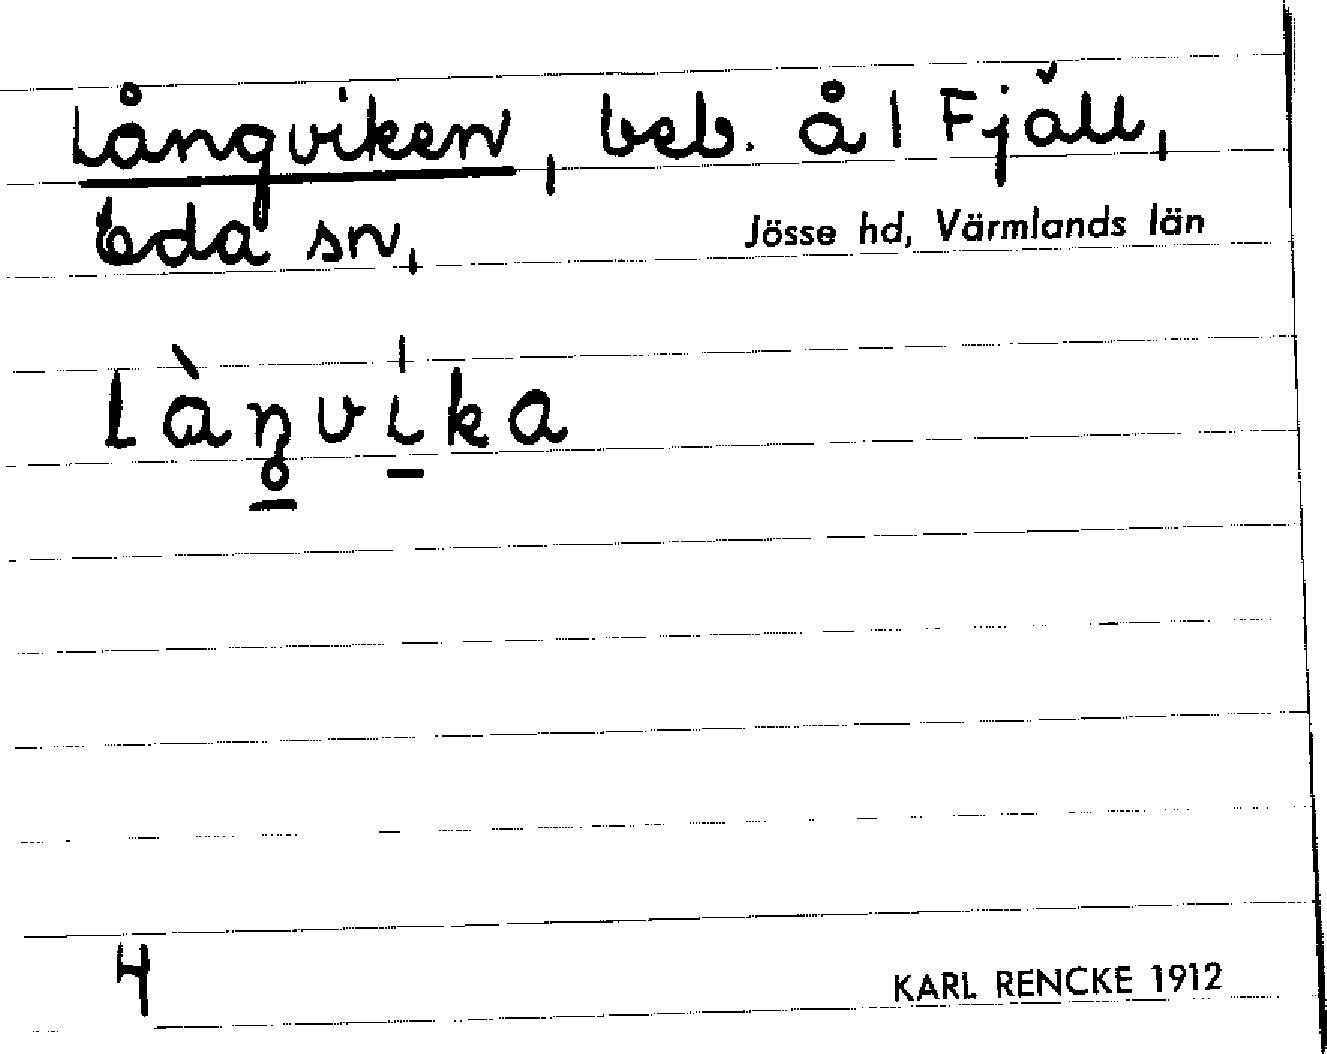 Långviken, beb. å 1 Fjäll,
Eda sn, Jösse hd, Värmlands län
làŋvi̱ka
4
KARL RENCKE 1912